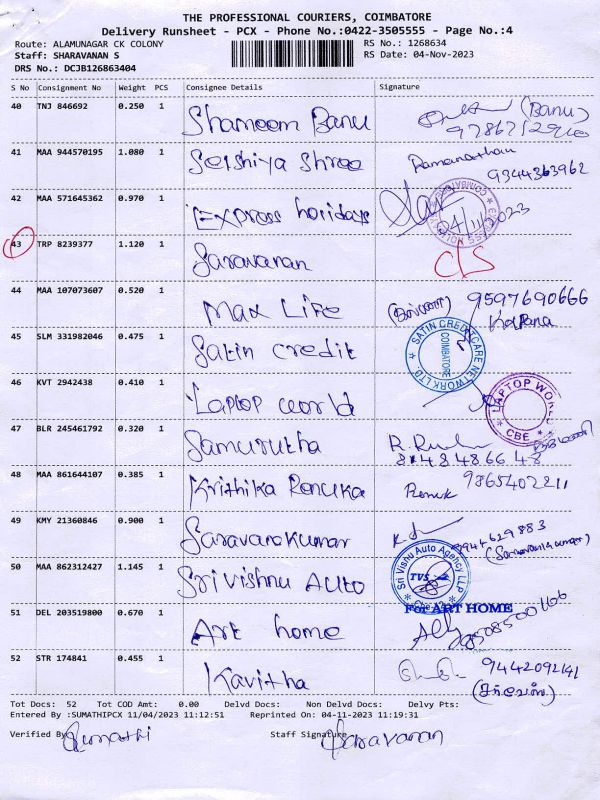 THE PROFESSIONAL COURIERS, COIMBATORE
Delivery Runsheet - PCX - Phone No.:0422-3505555 - Page No.:4
Route: ALAMUNAGAR CK COLONY RS No.: 1268634
Staff: SHARAVANAN S RS Date: 04-Nov-2023
DRS No.: DCJB126863404
S No Consignment No Weight PCS Consignee Details Signature
40 TNJ 846692 0.250 1 Shameem Banu (Banu)
41 MAA 944570195 1.080 1 Selshiya Shree Ramanathan
9344363962
42 MAA 571645362 0.970 1 Express holidays 04/11/2023
43 TRP 8239377 1.120 1 Saravanan C/S
44 MAA 107073607 0.520 1 Max Life 9597690666
Kalpana
45 SLM 331982046 0.475 1 Satin credit SATIN CREDITCARE NETWORK LTD COIMBATORE
46 KVT 2942438 0.410 1 Laptop world LAPTOP WORLD CBE
47 BLR 245461792 0.320 1 Samurutha
8148486648
48 MAA 861644107 0.385 1 Krithika Renuka Renuk 9865402211
49 KMY 21360846 0.900 1 Saravanakumar 9944629883
(Saravanakumar)
50 MAA 862312427 1.145 1 Sri Vishnu Auto Sri Vishu Auto Agency LLP TVS
51 DEL 203519800 0.670 1 Art home For ART HOME
52 STR 174841 0.455 1 Kavitha 9442092141
Tot Docs: 52 Tot COD Amt: 0.00 Delvd Docs: Non Delvd Docs: Delvy Pts:
Entered By :SUMATHIPCX 11/04/2023 11:12:51 Reprinted On: 04-11-2023 11:19:31
Verified By Sumathi Staff Signature Saravanan